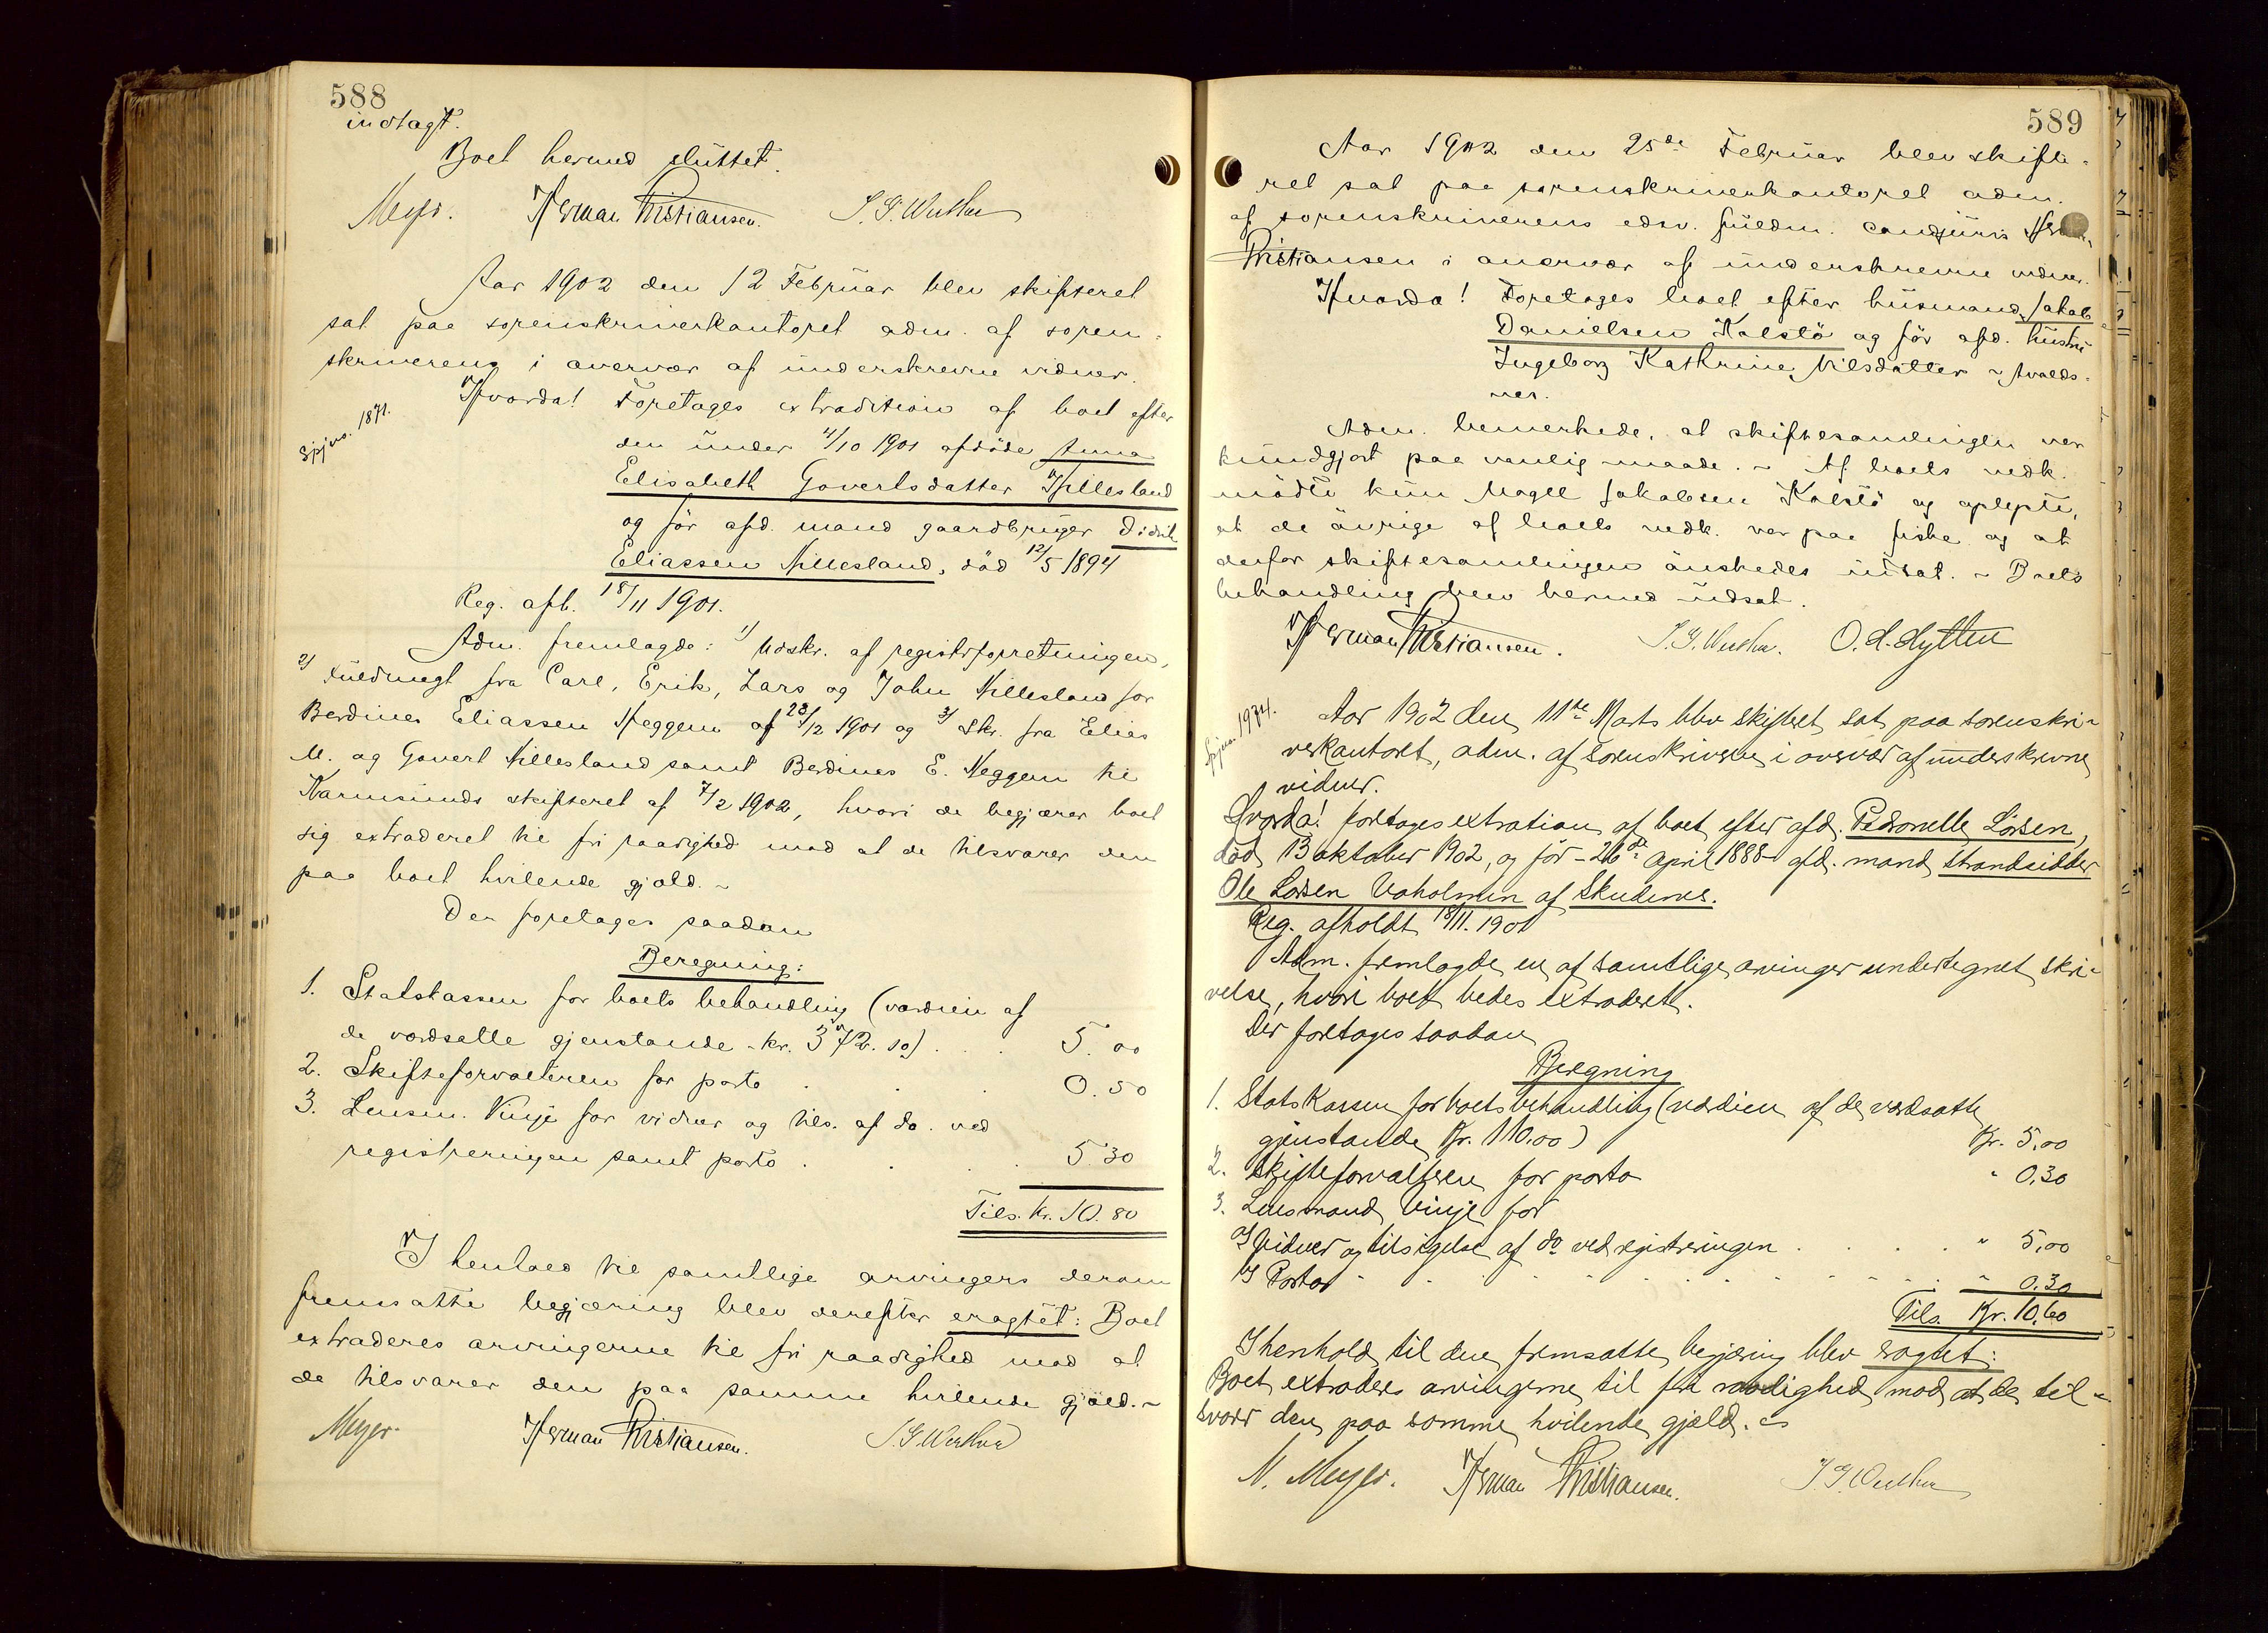 588
indtagt.
Boet hermed sluttet.
Meyer. Herman Kristiansen. S. G. Wuther
Aar 1902 den 12 Februar blev skifteret
sat paa sorenskriverkontoret adm. af soren-
skriveren i overvær af underskrevne vidner.
Spjno. 1871.
Hvorda! Foretages extradition af boet efter
den under 4/10 1901 afdöde Anna
Elisabeth Govertsdatter Hillesland
og för afd. mand gaardbruger Didrik
Eliassen Hillesland, död 12/5 1894
Reg. afh. 18/11 1901.
Adm. fremlagde: 1/ Udskr. af registrforretningen,
2/ Fuldmagt fra Carl, Erik, Lars og John Hillesland for
Berdines Eliassen Heggem af 23/12 1901 og 3/ Skr. fra Elias
M. og Govert Hillesland samt Berdines E. Heggem til
Karmsunds skifteret af 7/2 1902, hvori de begjærer boet
sig extraderet til fri raadighed mod at de tilsvarer den
paa boet hvilende gjæld. ~
Der foretages saadan
Beregning:
1. Statskassen for boets behandling (værdien af
de værdsatte gjenstande - kr. 372.10) . . . 5.00
2. Skifteforvalteren for porto . . . 0.50
3. Lensm. Vinje for vidner og tils. af do. ved
registreringen samt porto . . . 5.30
Tils. kr. 10.80
I henhold til samtlige arvingers derom
fremsatte begjæring blev derefter eragtet: Boet
extraderes arvingerne til fri raadighed mod at
de tilsvarer den paa samme hvilende gjæld. ~
Meyer. Herman Kristiansen. S. G. Wuther
589
Aar 1902 den 25de Februar blev skifte-
ret sat paa sorenskriverkontoret adm.
af sorenskriverens edsv. fuldm. cand. juris Herman
Kristiansen i overvær af underskrevne vidner.
Hvorda! Foretages boet efter husmand Jakob
Danielsen Kalstö og för afd. hustru
Ingeborg Kathrine Nilsdatter ~ Avalds-
nes.
Adm. bemerkede, at skiftesamlingen var
kundgjort paa vanlig maade. ~ Af boets vedk.
mödte kun Jakobsen Kalstö og oplyste,
at de övrige af boets vedk. var paa fiske og at
derfor skiftesamlingen önskedes udsat. ~ Boets
behandling blev hermed udsat.
Herman Kristiansen. S. G. Wuther. O. H. Hytten
Spjno. 1934.
Aar 1902 den 11te Marts blev skifteret sat paa sorenskri-
verkontoret, adm. af sorenskriveren i overvær af underskrevne
vidner.
Hvorda! foretages extration af boet efter afd. Pedronelle Larsen,
död 13 oktober 1902, og för - 26de april 1888 - afd. mand strandsidder
Ole Larsen Vaholmen af Skudenes.
Reg. afholdt 18/11. 1901
Adm. fremlagde en af samtlige arvinger undertegnet skri-
velse, hvori boet bedes extraderet.
Der foretages saadan
Beregning
1. Statskassen for boets behandling (værdien af de værdsatte
gjenstande Kr. 110.00) Kr. 5,00
2. Skifteforvalteren for porto " 0,30
3. Lensmand Vinje for
a/ Vidner og tilsigelse af do ved registreringen . . . . " 5,00
b/ Porto . . . . " 0.30
Tils. Kr. 10,60
I henhold til den fremsatte begjæring blev eragtet:
Boet extraderes arvingerne til fri raadighed mod at de til-
svarer den paa samme hvilende gjæld. ~
N. Meyer. Herman Kristiansen. S. G. Wuther